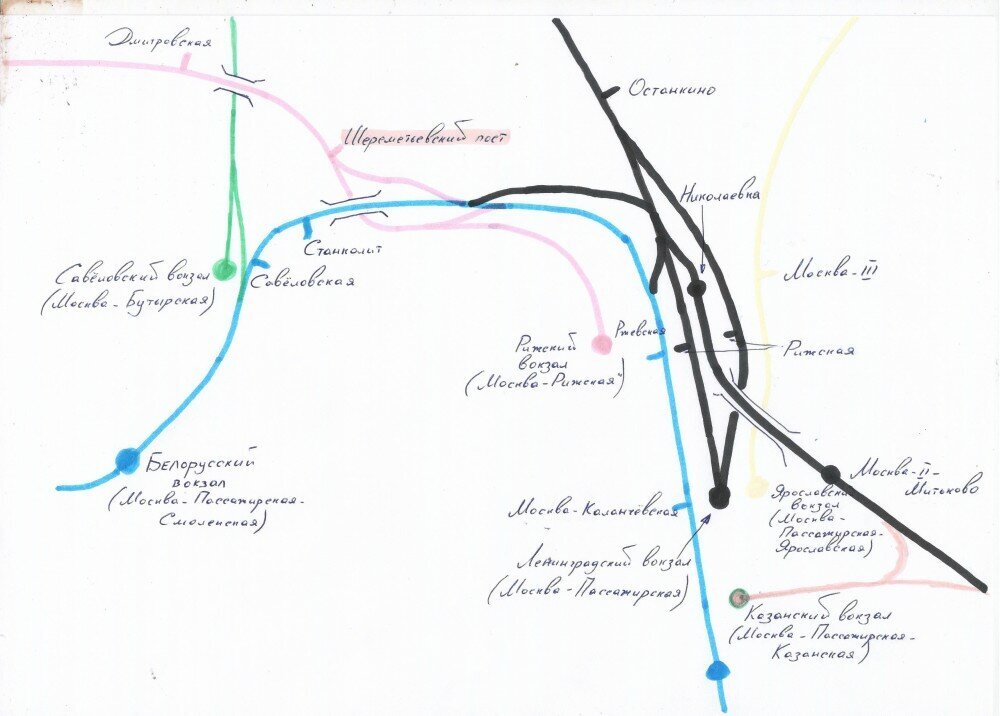 Дмитровская
Останкино
Шереметьевский пост
Николаевка
Станколит
Савёловский вокзал
(Москва-Бутырская)
Савёловская
Москва-III
Ржевская
Рижский
вокзал
(Москва-Рижская")
Рижская
Белорусский
вокзал
(Москва-Пассажирская-
Смоленская)
Москва-II-
Митьково
Ярославский
вокзал
(Москва-
Пассажирская-
Ярославская)
Москва-Каланчёвская
Ленинградский вокзал
(Москва-Пассажирская)
Казанский вокзал
(Москва-Пассажирская-
Казанская)